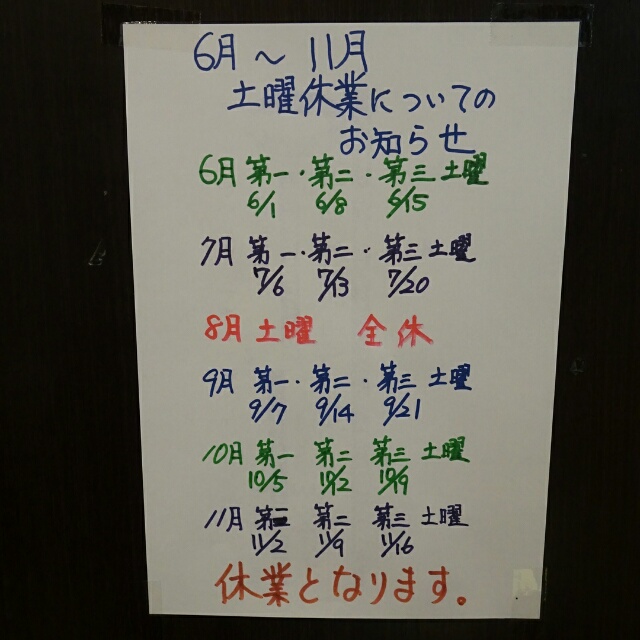 6月～11月
土曜休業についての
お知らせ
6月 第一・第二・第三 土曜
6/1 6/8 6/15
7月 第一・第二・第三 土曜
7/6 7/13 7/20
8月 土曜 全休
9月 第一・第二・第三 土曜
9/7 9/14 9/21
10月 第一 第二 第三 土曜
10/5 10/12 10/19
11月 第一 第二 第三 土曜
11/2 11/9 11/16
休業となります。